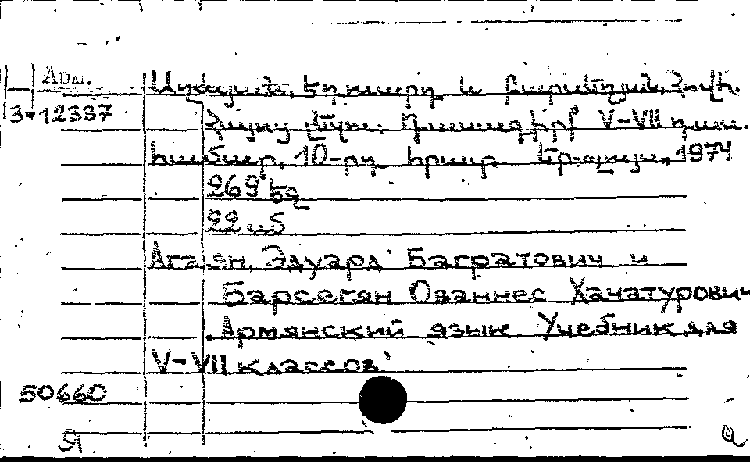 Арм.
Աղայան, Էդուարդ և Բարսեղյան, Հովհ.
3-12337
Հայոց լեզու: Դասագիրք V-VII դաս.
համար, 10-րդ հրատ. Երևան, 1974
269 էջ
22 սմ
Агаян, Эдуард Багратович и
Барсегян Ованнес Хачатурович
Армянский язык. Учебник для
V-VII классов
50660
Я а